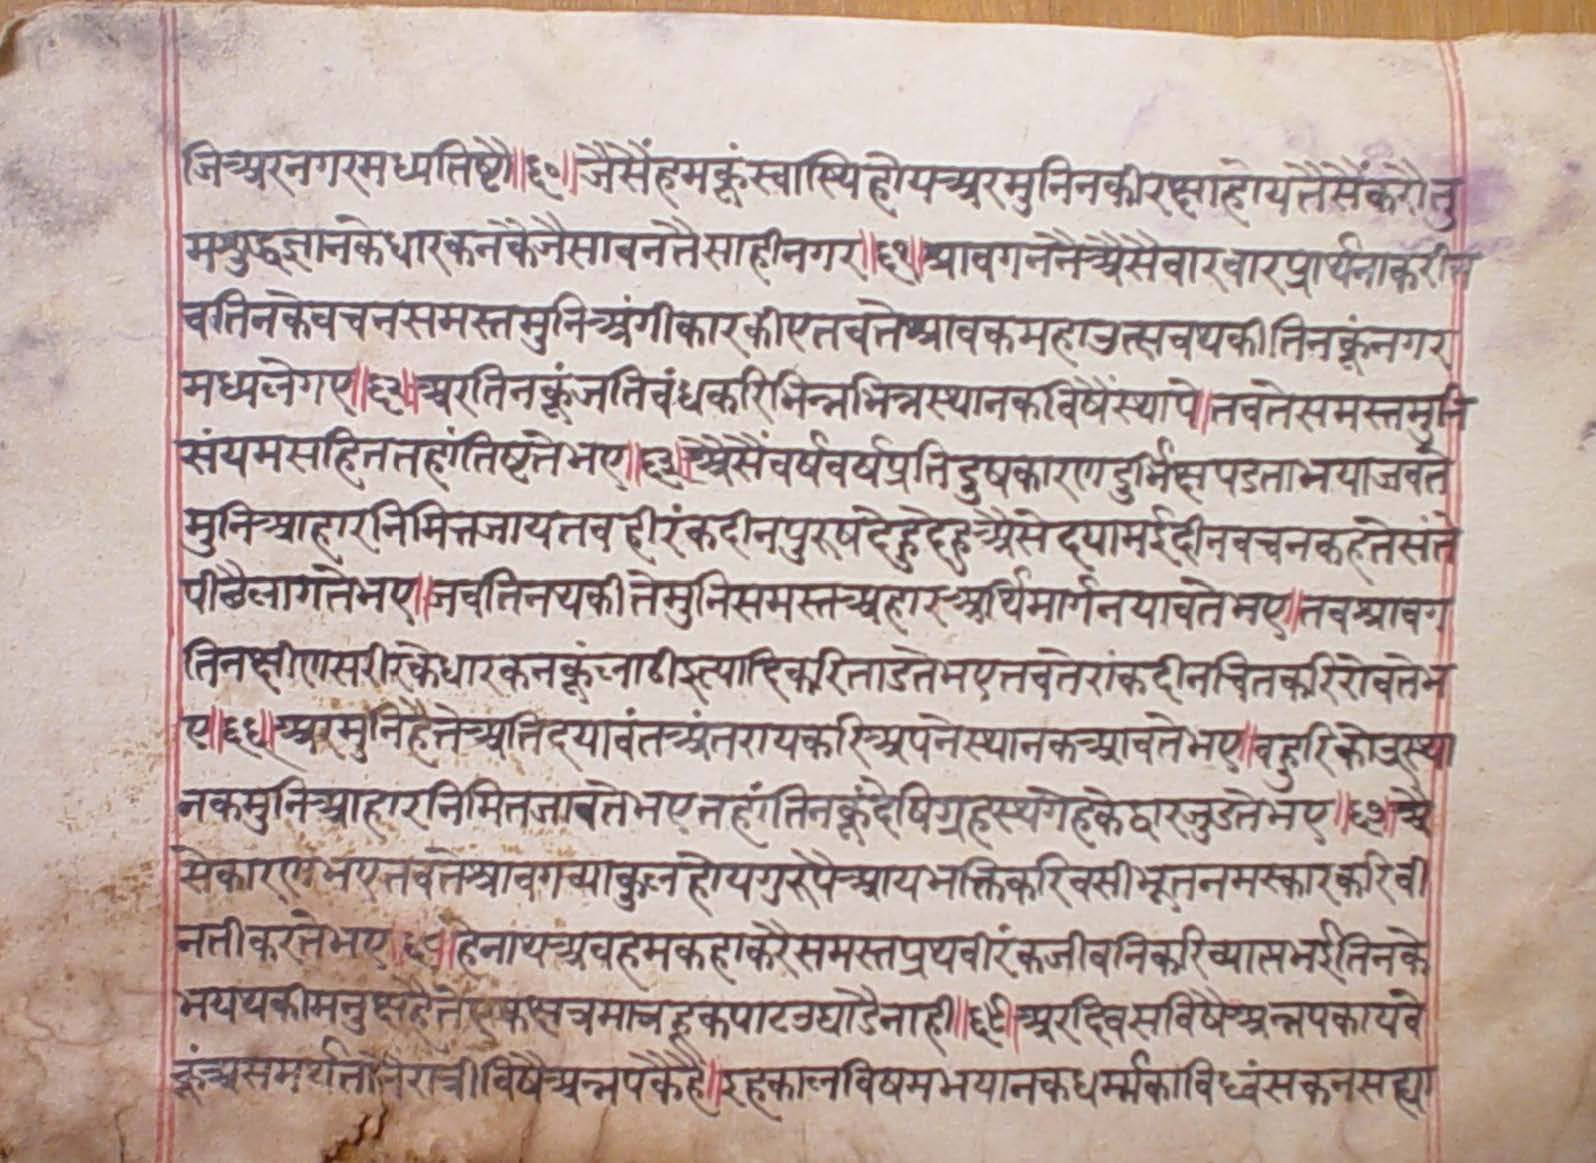 जिअरनगरमध्यतिष्टौ॥६०॥जैसैंहमकूंस्वास्थिहोयअरमुनिनकीरक्षाहोयतैसैंकरौतु
मशुद्धज्ञानकेधारकनकैजैसावनतैसाहीनगर॥६१॥श्रावगननैअैसैवारवारप्रार्थनाकरीत
वतिनकेवचनसमस्तमुनिअंगीकारकीएतवतेश्रावकमहाउत्सवथकीतिनकूंनगर
मध्यलेगए॥६२॥अरतिनकूंजतिवंधकरिभिन्नभिन्नस्थानकविषैंस्थापे॥तवतेसमस्तमुनि
संयमसहिततहांतिष्टतेभए॥६३॥अैसैंवर्षवर्षप्रतिदुषकारणदुर्भिक्षपडताभयाजवते
मुनिआहारनिमित्तजायतवहीरंकदीनपुरूषदेहुदेहुअैसेदयामईदीनवचनकहतेसंते
पीछैलागतेभए॥जवतिनथकीतेमुनिसमस्तअहारअर्थिमार्गनयावतेभए॥तवश्रावग
तिनक्षीणसरीरकेधारकनकूंलाठीइत्यादिकरिताडतेभएतवतेरांकदीनचितकरिरोवतेभ
ए॥६६॥अरमुनिहैतेअतिदयावंतअंतरायकरिअपनेस्थानकआवतेभए॥वहुरिकोउस्था
नकमुनिआहारनिमितजावतेभएतहांतिनकूंदेषिग्रहस्थगेहकेद्वारजुडतेभए॥६७॥अै
सेकारणभएतवतेश्रावगव्याकुलहोयगुरूपैआयभक्तिकरिवसीभूतनमस्कारकरिवी
नतीकरतेभए॥६८॥हेनाथअवहमकहाकरैसमस्तप्रथवीरंकजीवनिकरिव्याप्तभईतिनके
भयथकीमनुक्षहैतेएकक्षत्रमात्रहूकपाटउघाडैनाही॥६९॥अरदिवसविषैअन्नपकायवे
कूंअसमर्थतातैरात्रीविषैअन्नपकैहै॥इहकालविषमभयानकधर्म्मकाविध्वंसकनसह्या